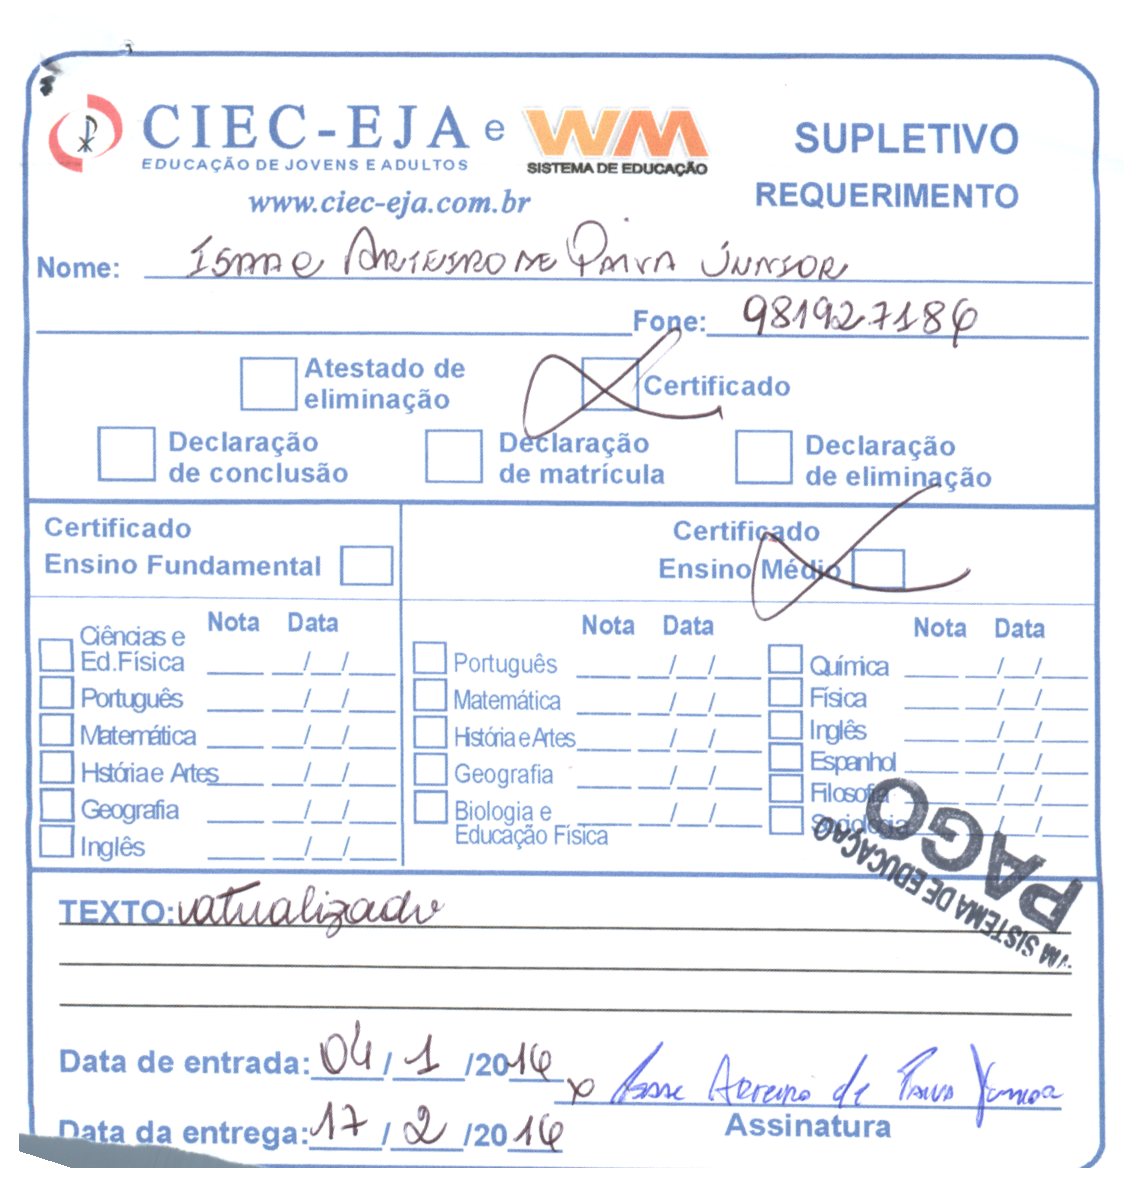 CIEC-EJA e WM
EDUCAÇÃO DE JOVENS E ADULTOS
SISTEMA DE EDUCAÇÃO
www.ciec-eja.com.br
SUPLETIVO
REQUERIMENTO
Nome: Isaac Arteiro de Paiva Júnior
Fone: 981927186
Atestado de
eliminação
Certificado
Declaração
de conclusão
Declaração
de matrícula
Declaração
de eliminação
Certificado
Ensino Fundamental
Nota Data
Ciências e
Ed.Física ____ __/__/__
Português ____ __/__/__
Matemática ____ __/__/__
História e Artes ____ __/__/__
Geografia ____ __/__/__
Inglês ____ __/__/__
Certificado
Ensino Médio
Nota Data
Português ____ __/__/__
Matemática ____ __/__/__
História e Artes ____ __/__/__
Geografia ____ __/__/__
Biologia e ____ __/__/__
Educação Física
Nota Data
Química ____ __/__/__
Física ____ __/__/__
Inglês ____ __/__/__
Espanhol ____ __/__/__
Filosofia ____ __/__/__
Sociologia ____ __/__/__
WM SISTEMA DE EDUCAÇÃO
PAGO
TEXTO: atualizado
Data de entrada: 04/1/2016
x Isaac Arteiro de Paiva Junior
Assinatura
Data da entrega: 17/2/2016